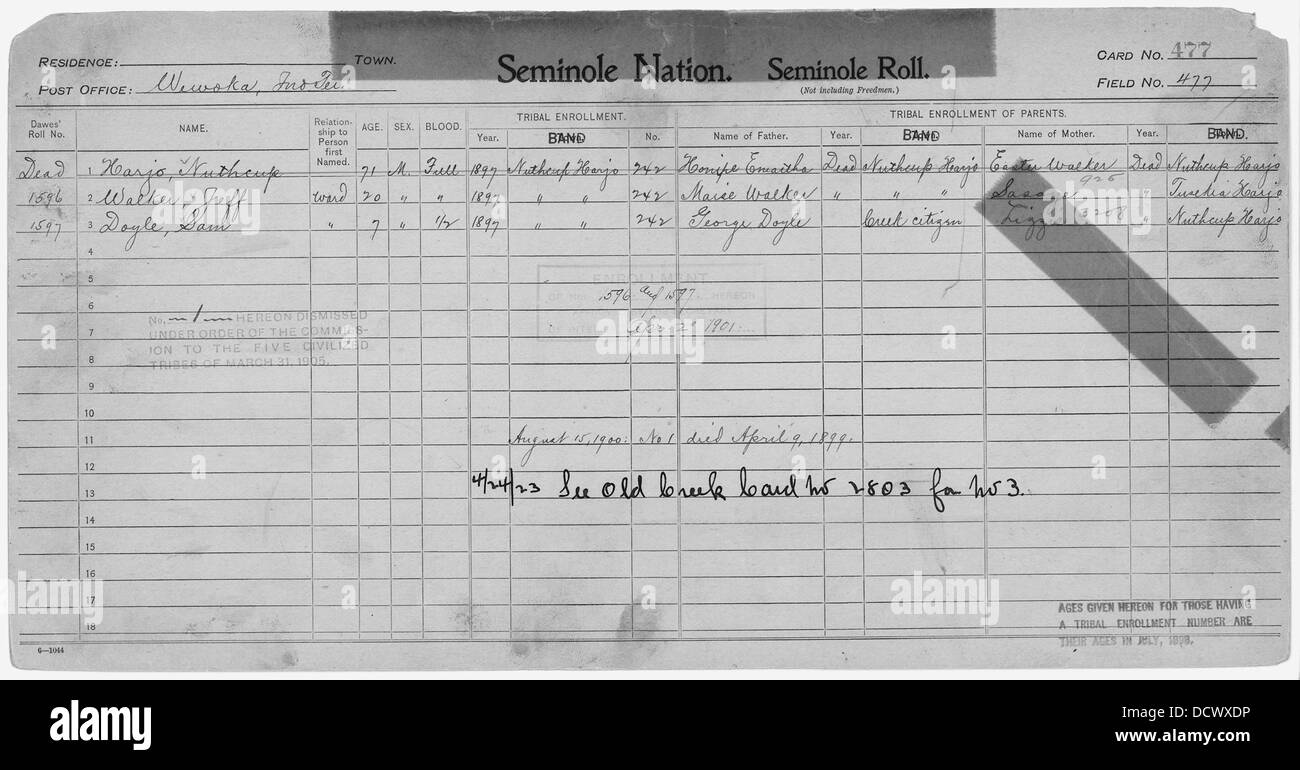 RESIDENCE: TOWN.
Seminole Nation. Seminole Roll.
(Not including Freedmen.)
CARD NO. 477
POST OFFICE: Wewoka, Ind Ter.
FIELD NO. 477
Dawes' Roll No. NAME. Relationship to Person first Named. AGE. SEX. BLOOD. TRIBAL ENROLLMENT. TRIBAL ENROLLMENT OF PARENTS.
Year. BAND No. Name of Father. Year. BAND Name of Mother. Year. BAND.
Dead 1 Harjo, Nuthcup 71 M. Full 1897 Nuthcup Harjo 242 Honipe Ematha Dead Nuthcup Harjo Easter Walker Dead Nuthcup Harjo
1596 2 Walker, Jeff ward 20 " " 1897 " " 242 Maise Walker " " " 926 Harjo
1597 3 Doyle, Sam " 7 " 1/2 1897 " " 242 George Doyle Creek citizen Lizzie 3208 " Nuthcup Harjo
4
5
ENROLLMENT
6
1596 and 1597 HEREON
No. 1 HEREON DISMISSED
UNDER ORDER OF THE COMMIS-
7
2 1901
ION TO THE FIVE CIVILIZED
8
TRIBES OF MARCH 31, 1905.
9
10
11 August 15, 1900: No 1 died April 9, 1899.
12
13 4/24/23 See Old Creek Card No 2803 for No 3.
14
15
16
17
AGES GIVEN HEREON FOR THOSE HAVING
A TRIBAL ENROLLMENT NUMBER ARE
18
THEIR AGES IN JULY, 1898.
6—1044
a alamy
alamy
Image ID: DCWXDP
www.alamy.com